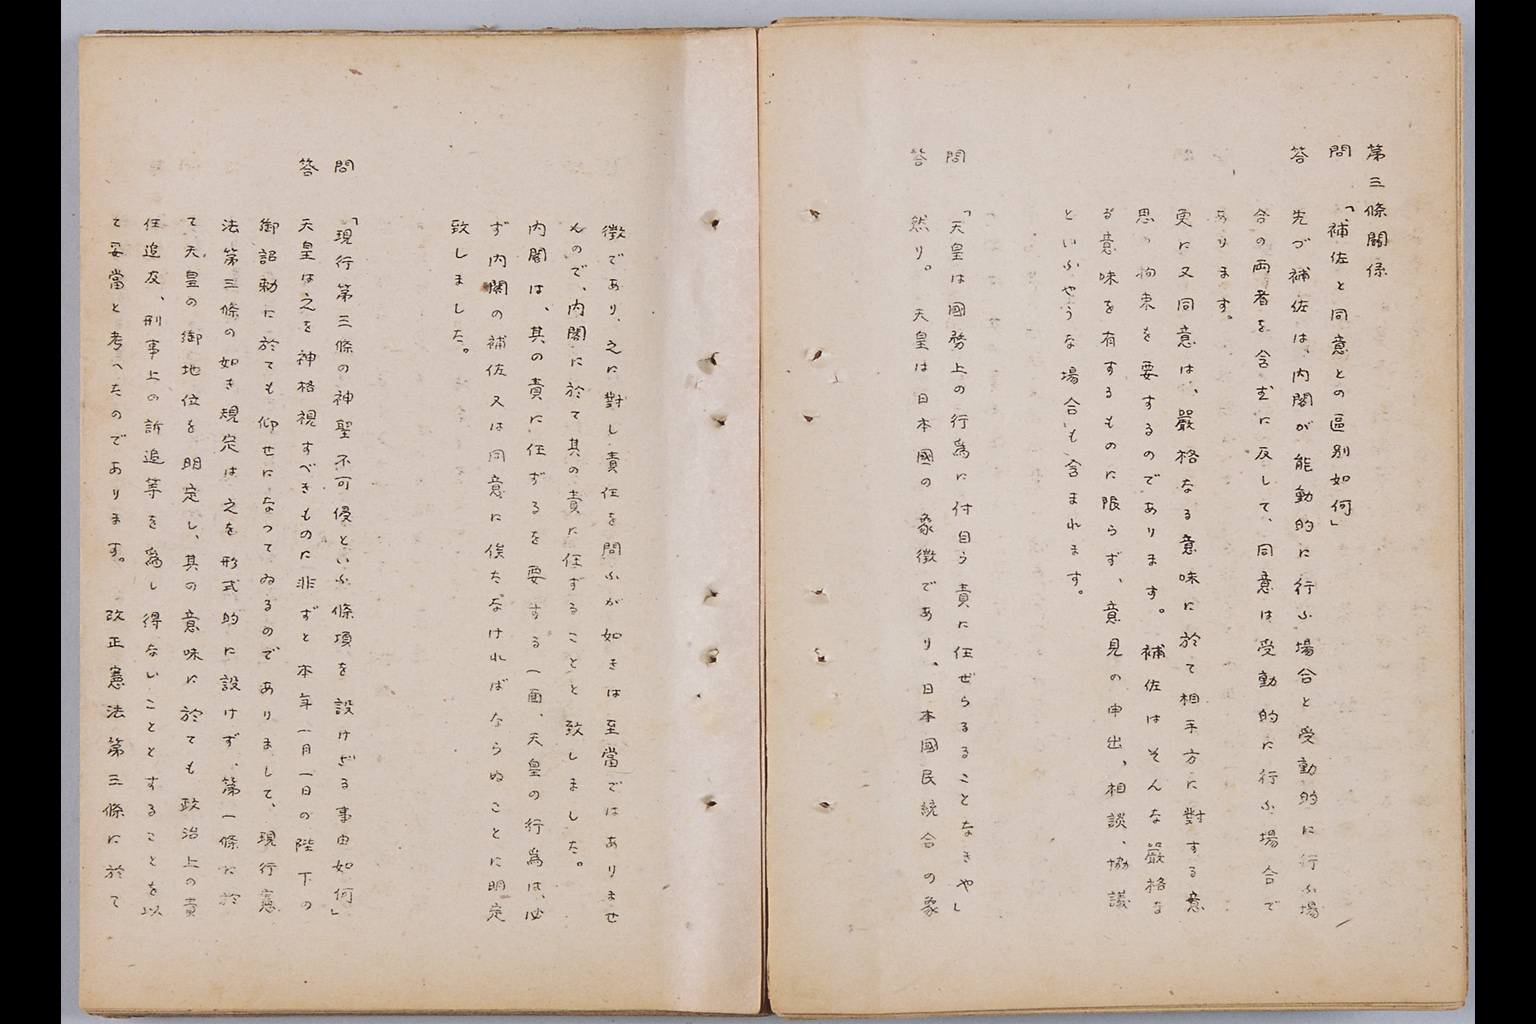 第三條關係
問 「補佐と同意との區別如何」
答 先づ補佐は、内閣が能動的に行ふ場合と受動的に行ふ場
合の両者を含むに反して、同意は受動的に行ふ場合で
あります。
更に又同意は、嚴格なる意味に於て相手方に對する意
思の拘束を要するのであります。補佐はそんな嚴格な
る意味を有するものに限らず、意見の申出、相談、協議
といふやうな場合も含まれます。
問 「天皇は國務上の行為に付自ら責に任ぜらるることなきやし
答 然り。天皇は日本國の象徴であり、日本國民統合の象
徴であり、之に對し責任を問ふが如きは至當ではありませ
んので、内閣に於て其の責に任ずることと致しました。
内閣は、其の責に任ずるを要する一面、天皇の行為は、必
ず内閣の補佐又は同意に俟たなければならぬことに明定
致しました。
問 「現行第三條の神聖不可侵といふ條項を設けざる事由如何」
答 天皇は之を神格視すべきものに非ずと本年一月一日の陛下の
御詔勅に於ても仰せになつてゐるのでありまして、現行憲
法第三條の如き規定は之を形式的に設けず、第一條に於
て天皇の御地位を明定し、其の意味に於ても政治上の責
任追及、刑事上の訴追等を為し得ないこととすることを以
て妥當と考へたのであります。改正憲法第三條に於て